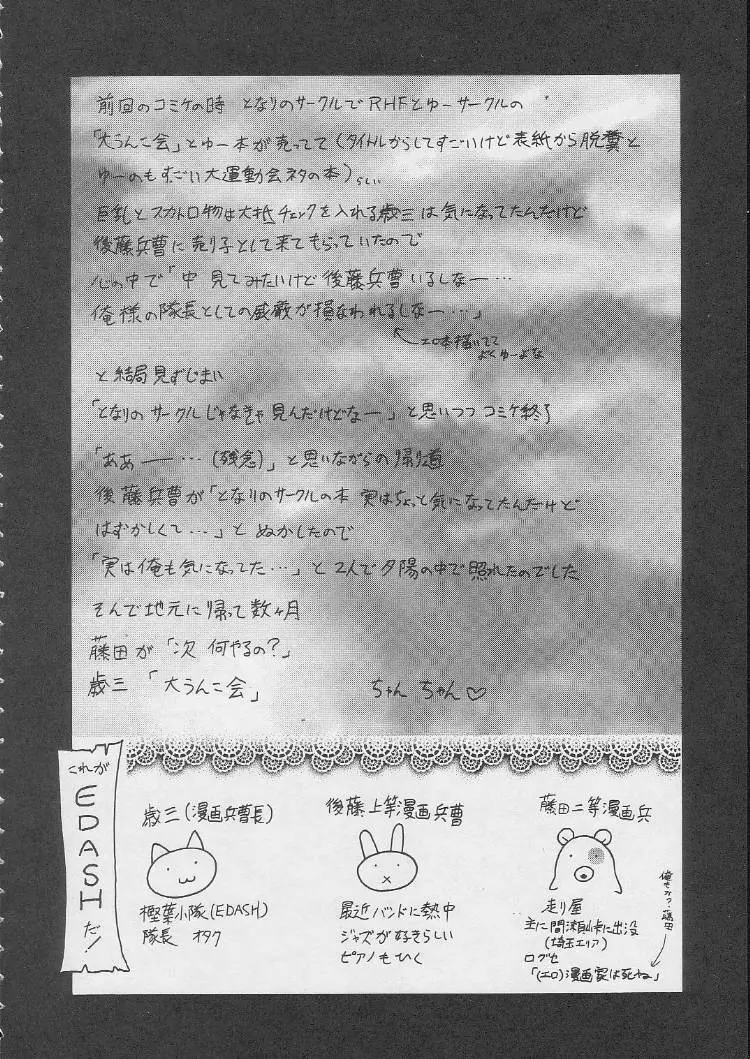 前回のコミケの時 となりのサークルでRHFとゆーサークルの
「大うんこ会」とゆー本が売ってて(タイトルからしてすごいけど表紙から脱糞と
ゆーのもすごい大運動会ネタの本)らしい
巨乳とスカトロ物は大抵チェックを入れる歳三は気になってたんだけど
後藤兵曹に売り子として来てもらっていたので
心の中で「中 見てみたいけど後藤兵曹いるしなー…
俺様の隊長としての威厳が損なわれるしなー…」
エロ本描いてて
よくゆーよな
と結局見ずじまい
「となりのサークルじゃなきゃ見んだけどなー」と思いつつコミケ終了
「ああー…(残念)」と思いながらの帰り道
後藤兵曹が「となりのサークルの本 実はちょっと気になってたんだけど
はずかしくて…」とぬかしたので
「実は俺も気になってた…」と2人で夕陽の中で照れたのでした
そんで地元に帰って数ヶ月
藤田が「次 何やるの?」
歳三「大うんこ会」 ちゃん ちゃん♡
これが
EDASH
だ!
歳三(漫画兵曹長)
樫葉小隊(EDASH)
隊長 オタク
後藤上等漫画兵曹
最近バンドに熱中
ジャズが好きらしい
ピアノもひく
藤田二等漫画兵
走り屋
主に間瀬峠に出没
(埼玉エリア)
ログセ
「(エロ)漫画家は死ね」
俺もか?藤田